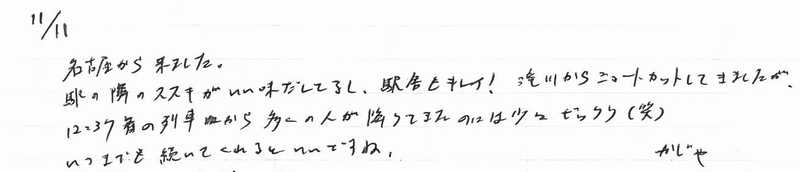 11/11
名古屋から来ました。
駅の隣のススキがいい味だしてるし、駅舎もキレイ! 滝川からショートカットしてきましたが、
12:37着の列車から多くの人が降りてきたのには少々ビックリ(笑)
いつまでも続いてくれるといいですね。
かじや